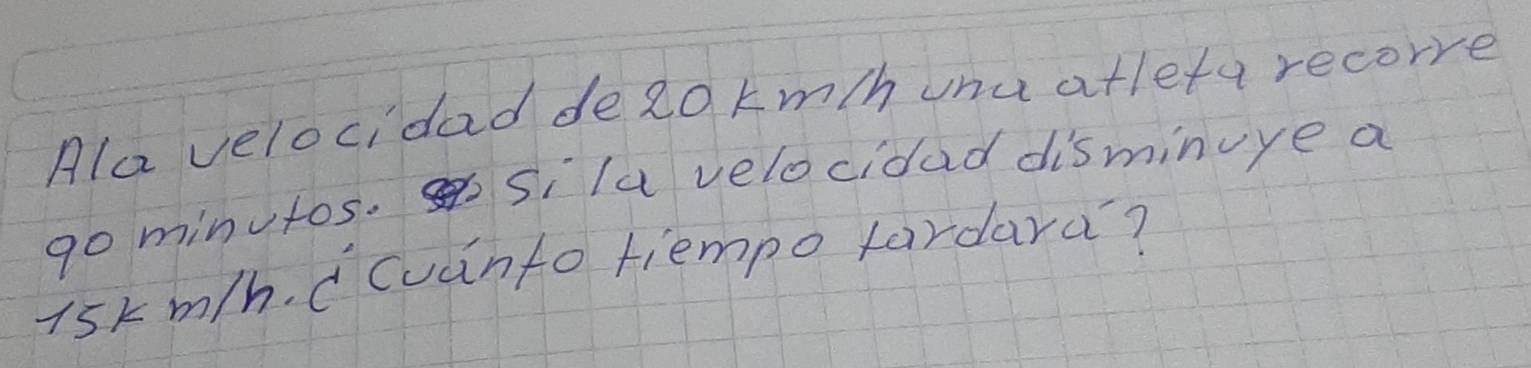 Ala velocidad de 20 km/h una atleta recorre
90 minutos. si la velocidad disminuye a
15 km/h. ¿Cuánto tiempo tardará?